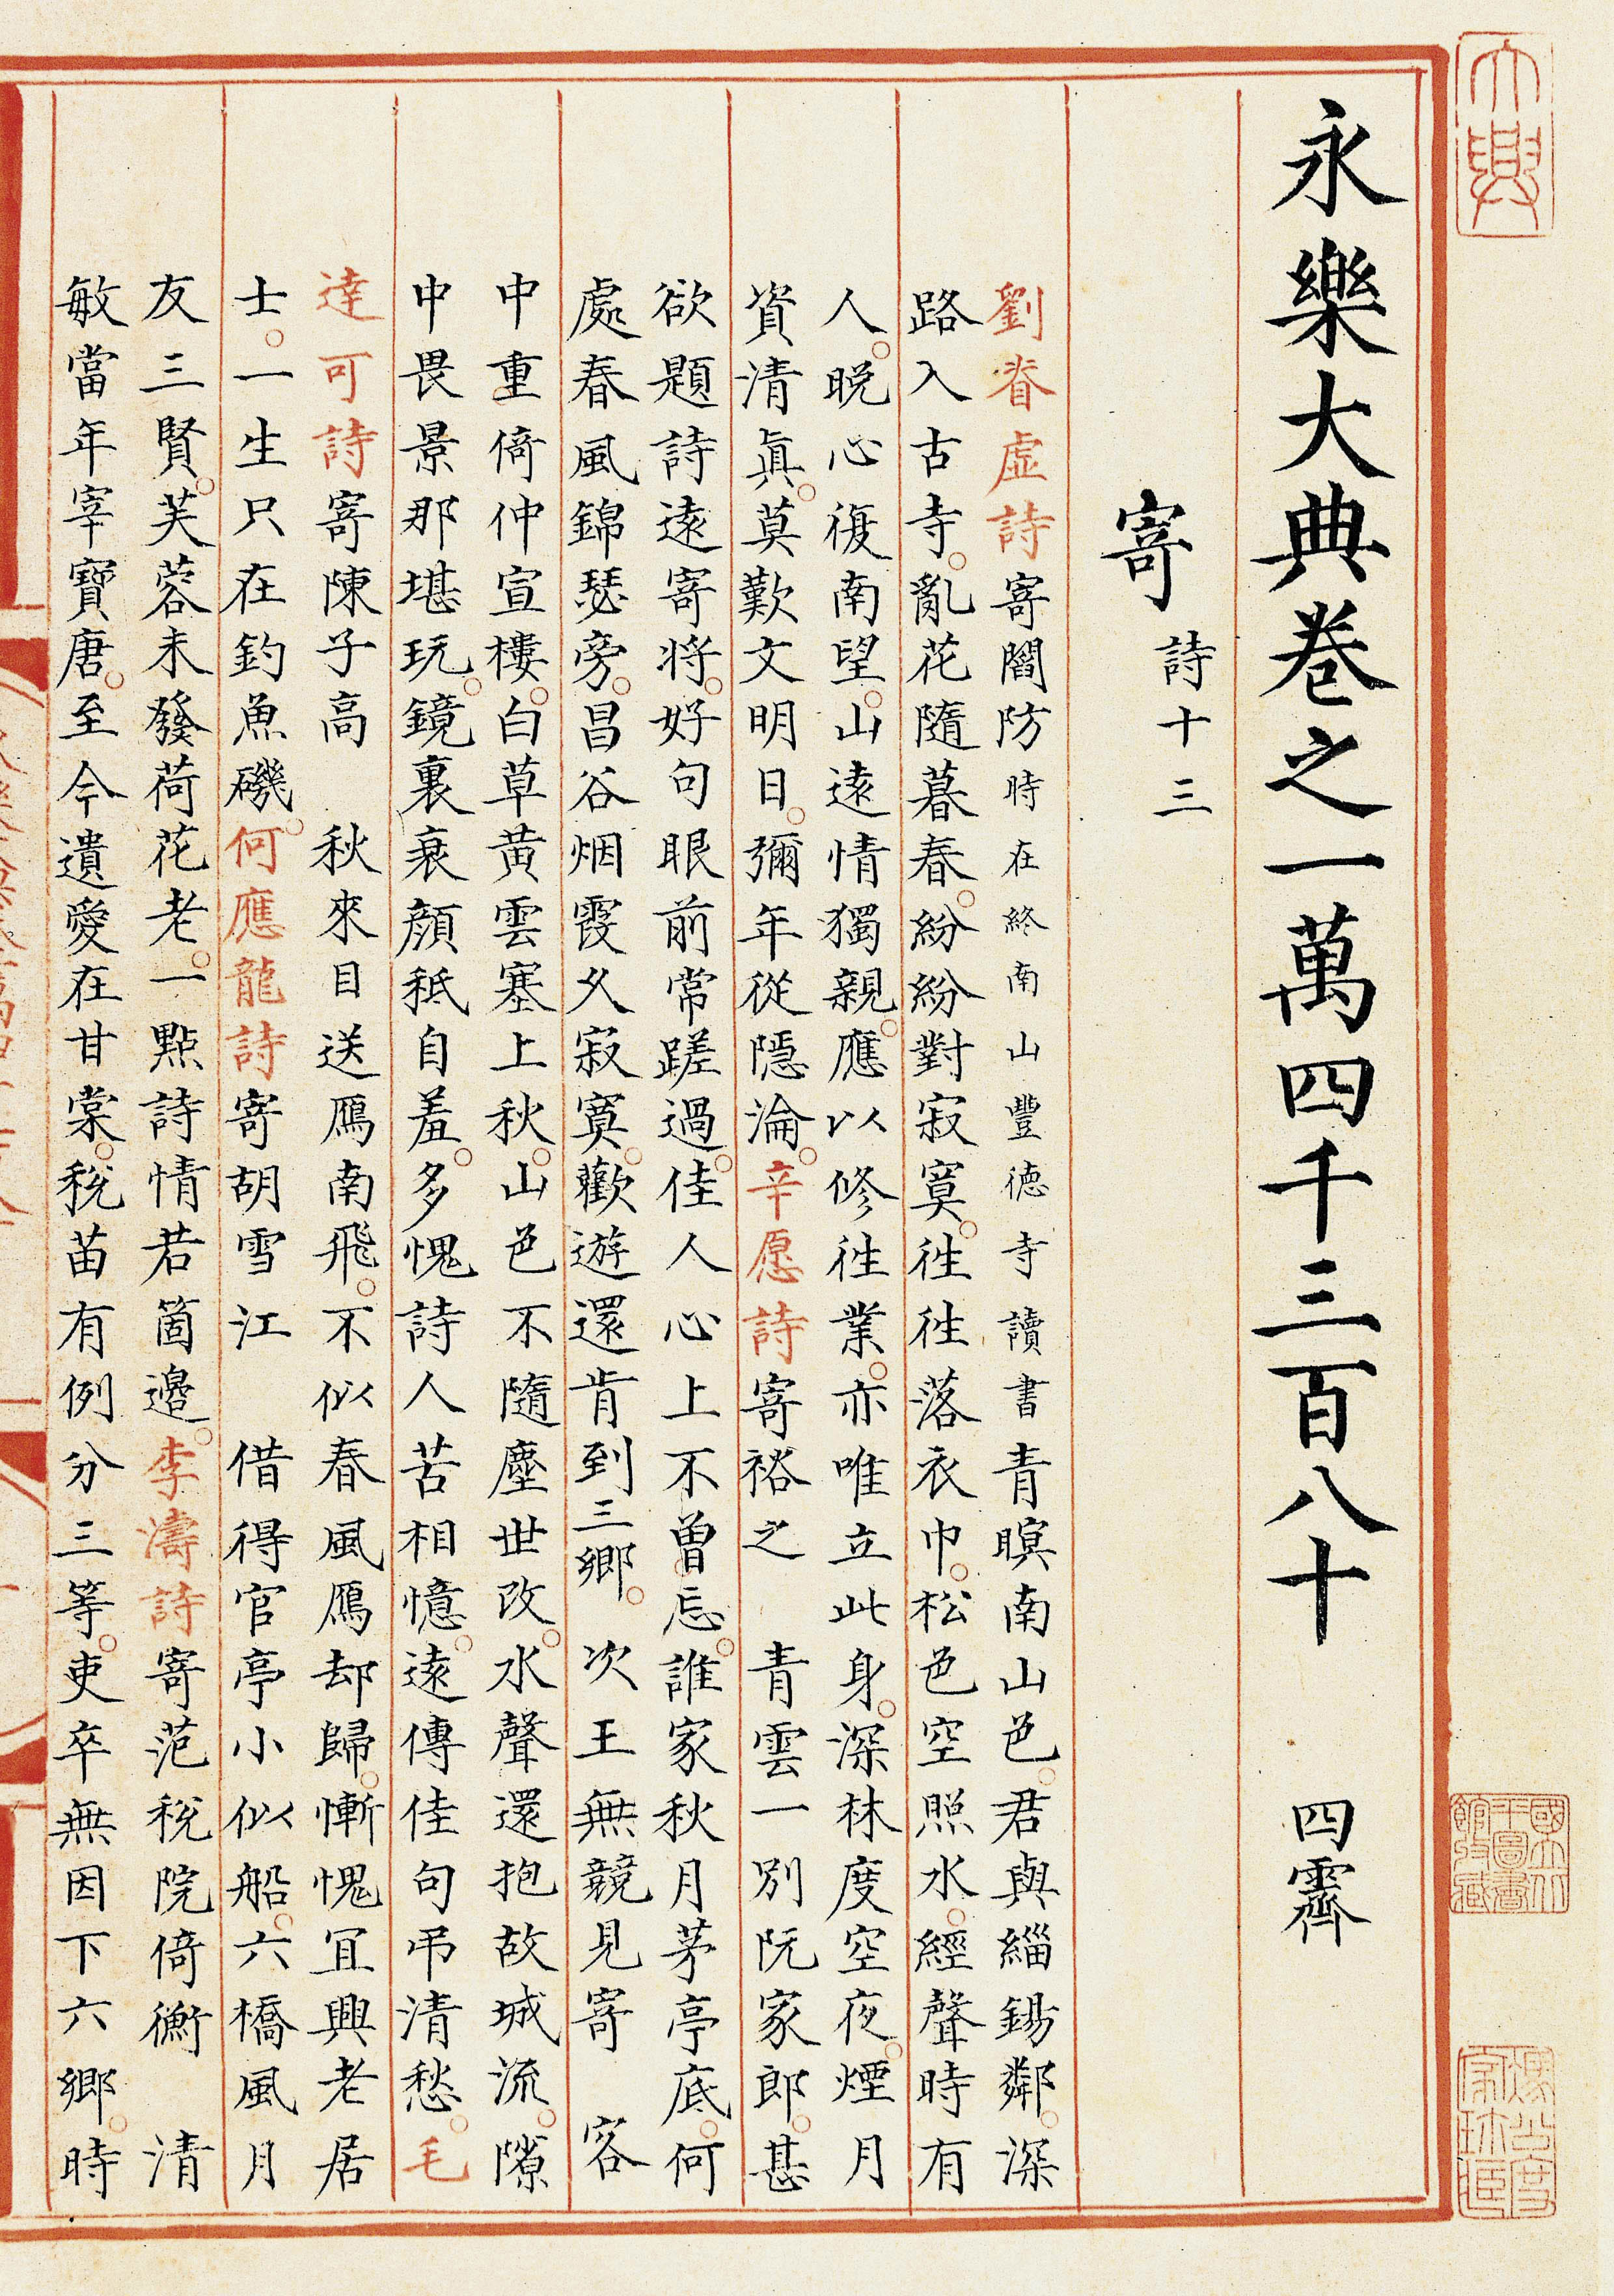 永樂大典卷之一萬四千三百八十 四霽
寄 詩十三
劉眘虛詩寄閻防時在終南山豐德寺讀書青暝南山色。君與緇錫鄰。深
路入古寺。亂花隨暮春。紛紛對寂寞。往往落衣巾。松色空照水。經聲時有
人。晚心復南望。山遠情獨親。應以修往業。亦唯立此身。深林度空夜。煙月
資清眞。莫歎文明日。彌年從隱淪。辛愿詩寄裕之 青雲一別阮家郎。甚
欲題詩遠寄將。好句眼前常蹉過。佳人心上不曾忘。誰家秋月茅亭底。何
處春風錦瑟旁。昌谷烟霞久寂寞。歡遊還肯到三鄉。 次王無競見寄 客
中重倚仲宣樓。白草黃雲塞上秋。山色不隨塵世改。水聲還抱故城流。隙
中畏景那堪玩。鏡裏衰顏秪自羞。多愧詩人苦相憶。遠傳佳句弔清愁。毛
達可詩寄陳子高 秋來目送鴈南飛。不似春風鴈却歸。慚愧冝興老居
士。一生只在釣魚磯。何應龍詩寄胡雪江 借得官亭小似船。六橋風月
友三賢。芙蓉未發荷花老。一點詩情若箇邊。李濤詩寄范稅院倚衡 清
敏當年宰寶唐。至今遺愛在甘棠。稅苗有例分三等。吏卒無因下六鄉。時
大典
國立北平圖書館收藏